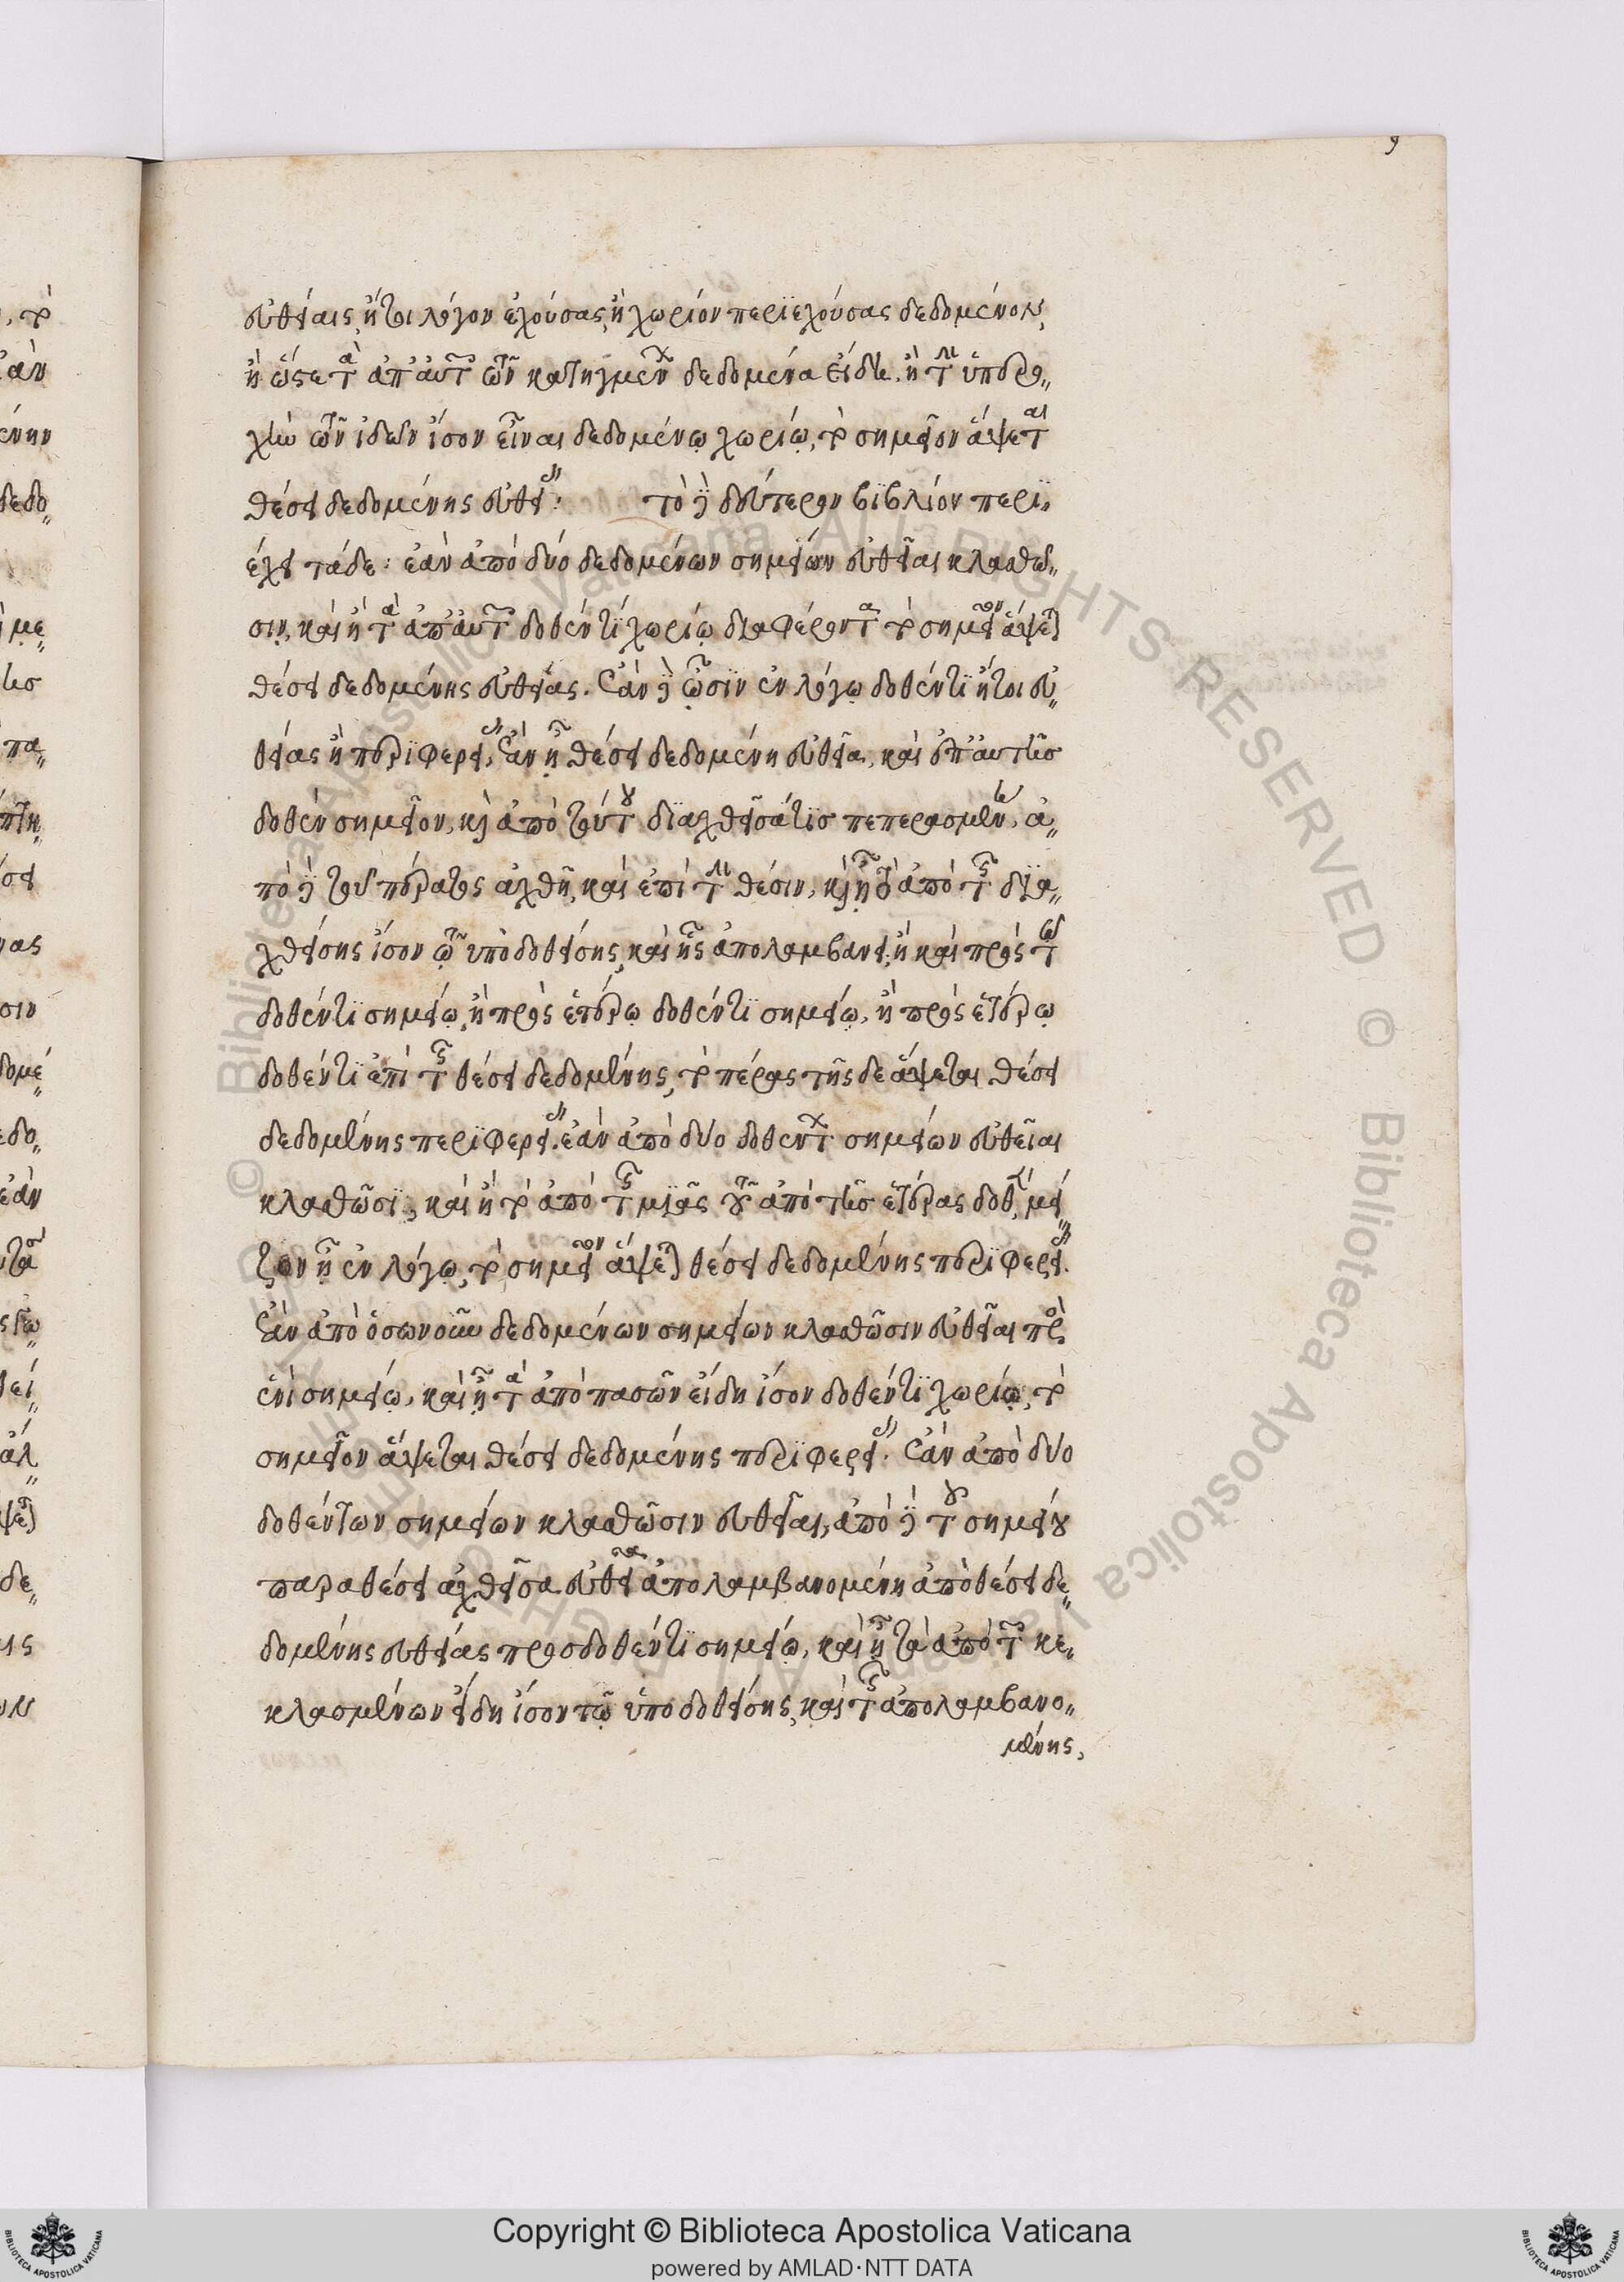 9
εὐθείαις ἤτοι λόγον ἐχούσας, ἢ χωρίον περιεχούσας δεδομένον,
ἢ ὥστε τὰ ἀπ' αὐτῶν τῶν κατηγμένων δεδομένα εἴδη, ἢ τὴν ὑπερο„
χὴν τῶν εἰδῶν ἴσον εἶναι δεδομένῳ χωρίῳ, τὸ σημεῖον ἅψεται
θέσει δεδομένης εὐθείας: τὸ δὲ δεύτερον βιβλίον περι„
έχει τάδε: ἐὰν ἀπὸ δύο δεδομένων σημείων εὐθεῖαι κλασθῶ„
σιν, καὶ ἢ τὰ ἀπ' αὐτῶν δοθέντι χωρίῳ διαφέροντα τὸ σημεῖον ἅψεται
θέσει δεδομένης εὐθείας. Ἐὰν δὲ ὦσιν ἐν λόγῳ δοθέντι ἤτοι εὐ„
θείας ἢ περιφερείας, Ἐὰν ᾖ θέσει δεδομένη εὐθεῖα, καὶ ἐπ' αὐτῆς
δοθὲν σημεῖον, καὶ ἀπὸ τούτου διαχθεῖσά τις πεπερασμένη, ἀ„
πὸ δὲ τοῦ πέρατος ἀχθῇ, καὶ ἐπὶ τὴν θέσιν, καὶ ᾖ τὸ ἀπὸ τῆς δια„
χθείσης ἴσον τῷ ὑπὸ δοθείσης, καὶ ἧς ἀπολαμβάνει, ἢ καὶ πρὸς τῷ
δοθέντι σημείῳ, ἢ πρὸς ἑτέρῳ δοθέντι σημείῳ, ἢ πρὸς ἑτέρῳ
δοθέντι ἐπὶ τῆς θέσει δεδομένης, τὸ πέρας τῆς δε ἅψεται θέσει
δεδομένης περιφερείας. ἐὰν ἀπὸ δύο δοθέντων σημείων εὐθεῖαι
κλασθῶσι, καὶ ἢ τὸ ἀπὸ τῆς μιᾶς τοῦ ἀπὸ τῆς ἑτέρας δοθέντι μεῖ„
ζον ᾖ ἐν λόγῳ, τὸ σημεῖον ἅψεται θέσει δεδομένης περιφερείας.
Ἐὰν ἀπὸ ὁσωνοῦν δεδομένων σημείων κλασθῶσιν εὐθεῖαι πρὸς
ἑνὶ σημείῳ, καὶ ᾖ τὰ ἀπὸ πασῶν εἴδη ἴσον δοθέντι χωρίῳ, τὸ
σημεῖον ἅψεται θέσει δεδομένης περιφερείας. Ἐὰν ἀπὸ δύο
δοθέντων σημείων κλασθῶσιν εὐθεῖαι, ἀπὸ δὲ τοῦ σημείου
παρα θέσει ἀχθεῖσα εὐθεῖα ἀπολαμβανομένη ἀπὸ θέσει δε„
δομένης εὐθείας προς δοθέντι σημείῳ, καὶ ᾖ τὰ ἀπὸ τῶν κε„
κλασμένων εἴδη ἴσον τῷ ὑπὸ δοθείσης, καὶ τῆς ἀπολαμβανο„
μένης,
Copyright © Biblioteca Apostolica Vaticana
powered by AMLAD·NTT DATA